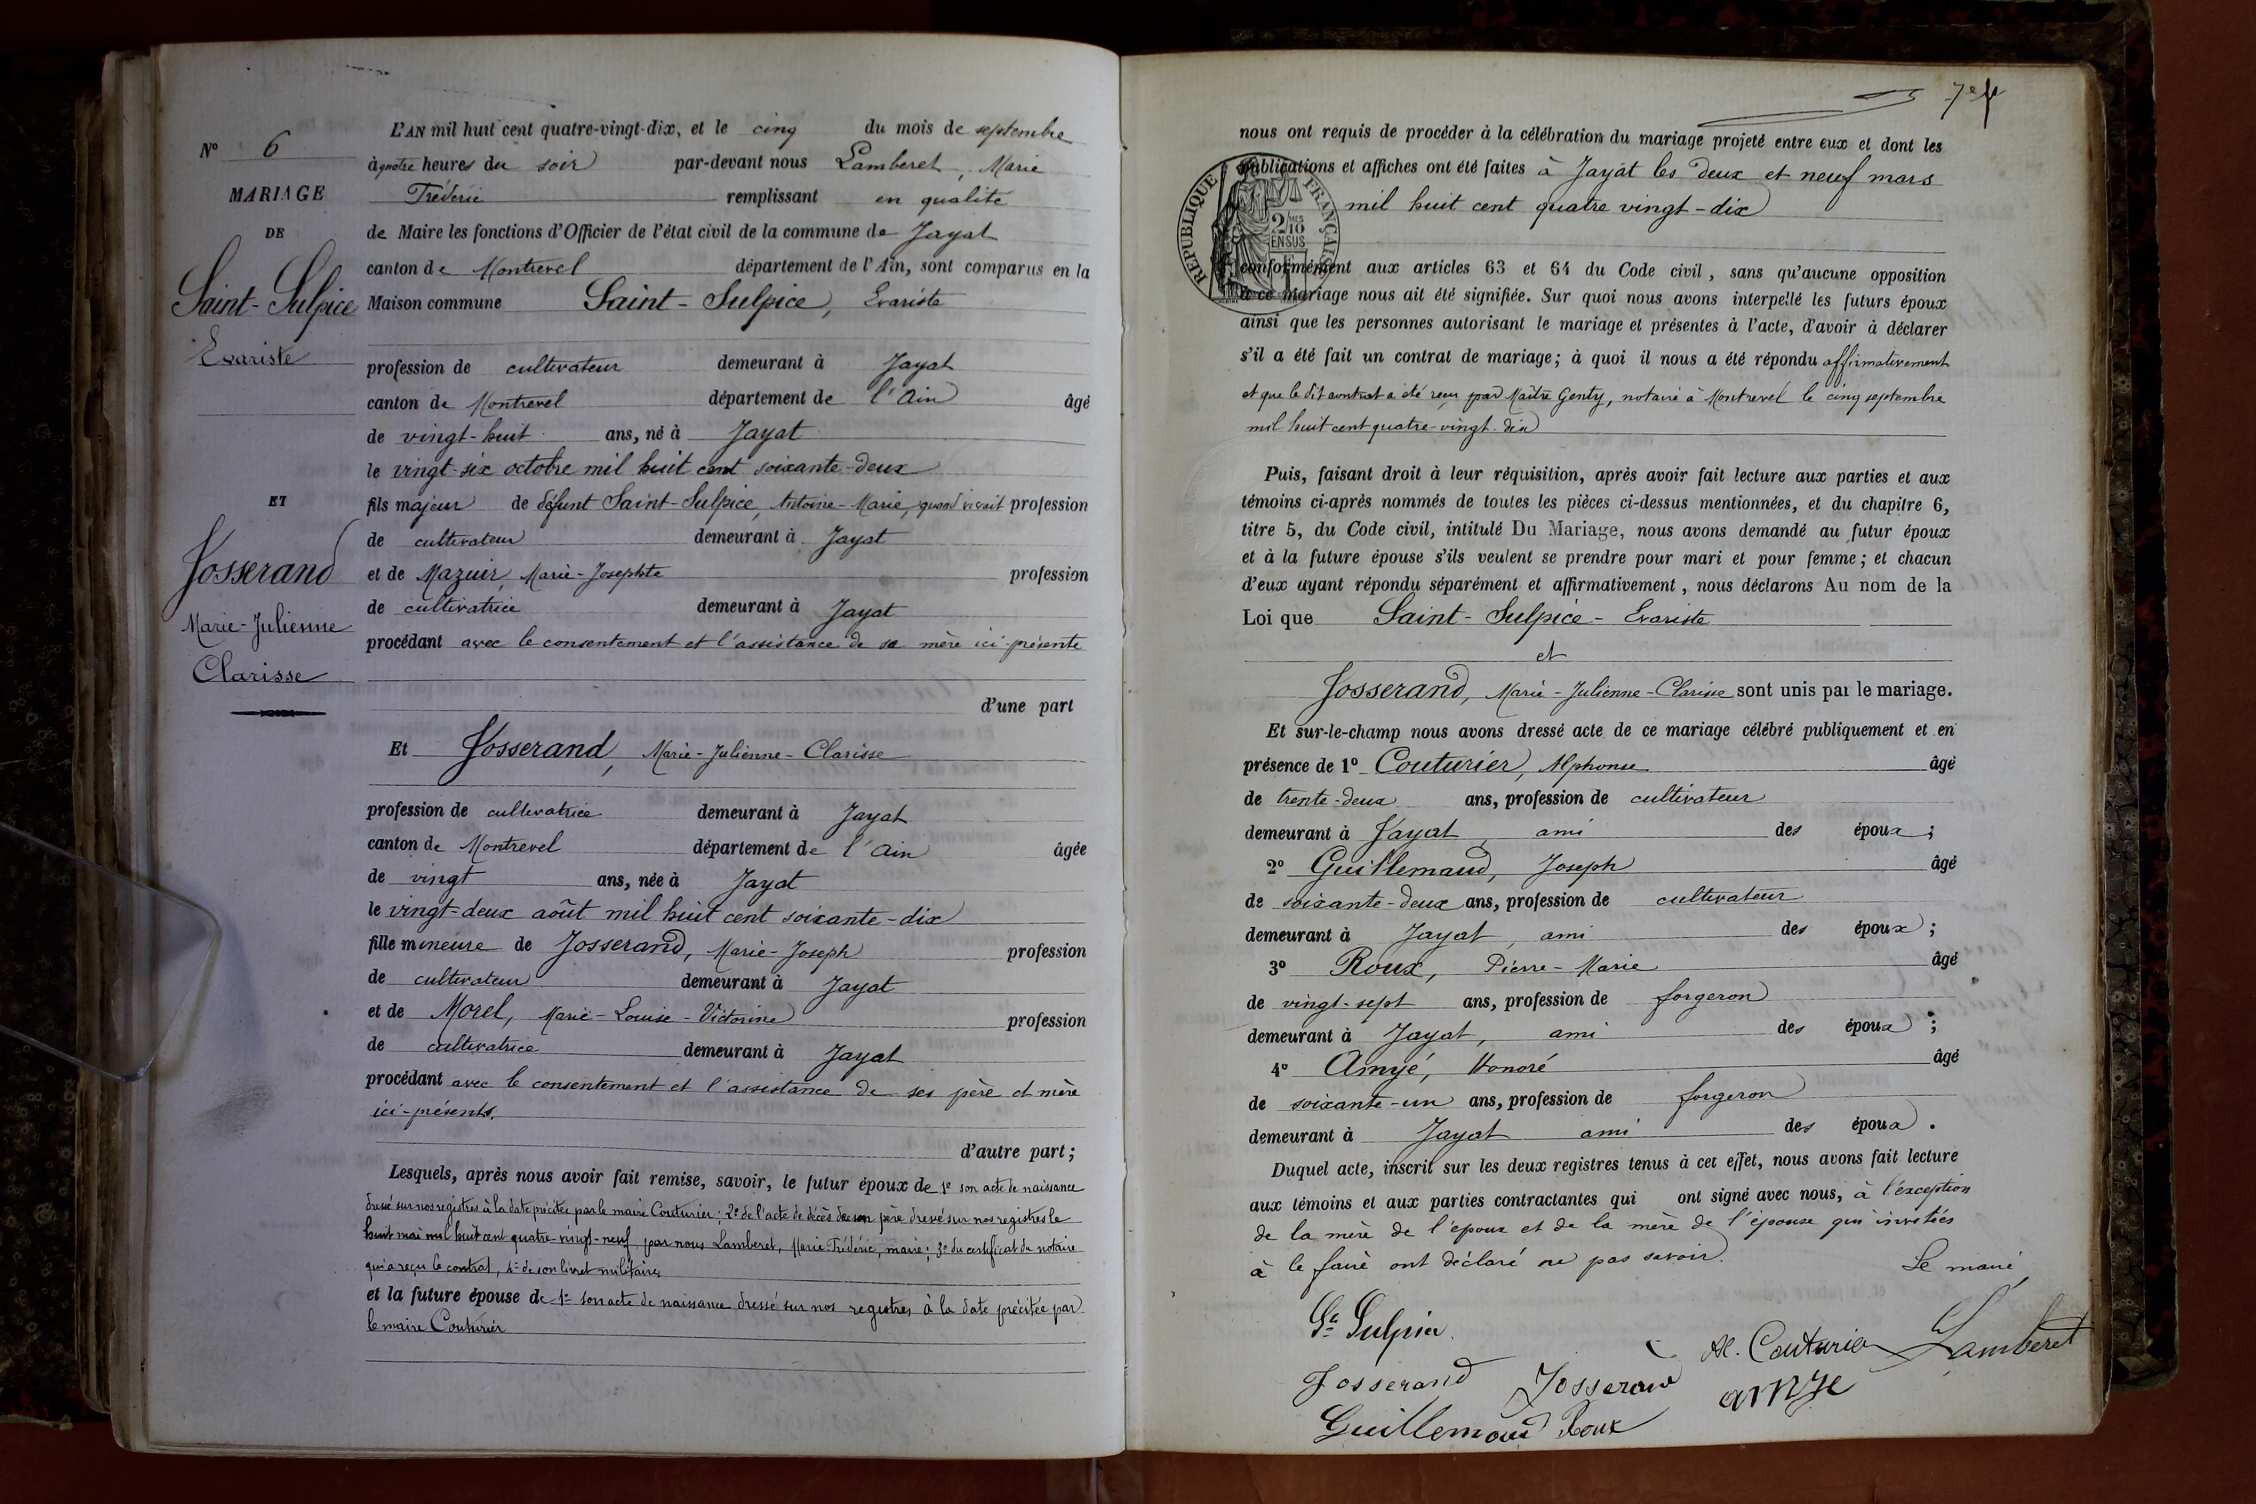 N° 6
MARIAGE
DE
Saint-Sulpice
Evariste
ET
Josserand
Marie-Julienne
Clarisse
L'AN mil huit cent quatre-vingt-dix, et le cinq du mois de septembre
à quatre heures du soir par-devant nous Lamberet, Marie
Fréderic remplissant en qualité
de Maire les fonctions d'Officier de l'état civil de la commune de Jayat
canton de Montrevel département de l'Ain, sont comparus en la
Maison commune Saint-Sulpice, Evariste
profession de cultivateur demeurant à Jayat
canton de Montrevel département de l'Ain âgé
de vingt-huit ans, né à Jayat
le vingt-six octobre mil huit cent soixante-deux
fils majeur de défunt Saint-Sulpice, Antoine-Marie, quand vivait profession
de cultivateur demeurant à Jayat
et de Mazuir, Marie-Josephte profession
de cultivatrice demeurant à Jayat
procédant avec le consentement et l'assistance de sa mère ici-présente
d'une part
Et Josserand, Marie-Julienne-Clarisse
profession de cultivatrice demeurant à Jayat
canton de Montrevel département de l'Ain âgée
de vingt ans, née à Jayat
le vingt-deux août mil huit cent soixante-dix
fille mineure de Josserand, Marie-Joseph profession
de cultivateur demeurant à Jayat
et de Morel, Marie-Louise-Victorine profession
de cultivatrice demeurant à Jayat
procédant avec le consentement et l'assistance de ses père et mère
ici-présents.
d'autre part;
Lesquels, après nous avoir fait remise, savoir, le futur époux de 1° son acte de naissance
dressé sur nos registres à la date précitée par le maire Couturier; 2° de l'acte de décès de son père dressé sur nos registres le
huit mai mil huit cent quatre-vingt-neuf par nous Lamberet, Marie-Frédéric, maire; 3° du certificat du notaire
qui a reçu le contrat, 4° de son livret militaire
et la future épouse de 1° son acte de naissance dressé sur nos registres à la date précitée par
le maire Couturier
7e
nous ont requis de procéder à la célébration du mariage projeté entre eux et dont les
publications et affiches ont été faites à Jayat les deux et neuf mars
mil huit cent quatre vingt-dix
REPUBLIQUE FRANÇAISE
2/10 MES
EN SUS
conformément aux articles 63 et 64 du Code civil, sans qu'aucune opposition
à ce mariage nous ait été signifiée. Sur quoi nous avons interpellé les futurs époux
ainsi que les personnes autorisant le mariage et présentes à l'acte, d'avoir à déclarer
s'il a été fait un contrat de mariage; à quoi il nous a été répondu affirmativement
et que le dit contrat a été reçu par Maître Genty, notaire à Montrevel le cinq septembre
mil huit cent quatre-vingt-dix
Puis, faisant droit à leur réquisition, après avoir fait lecture aux parties et aux
témoins ci-après nommés de toutes les pièces ci-dessus mentionnées, et du chapitre 6,
titre 5, du Code civil, intitulé Du Mariage, nous avons demandé au futur époux
et à la future épouse s'ils veulent se prendre pour mari et pour femme; et chacun
d'eux ayant répondu séparément et affirmativement, nous déclarons Au nom de la
Loi que Saint-Sulpice-Evariste
et
Josserand, Marie-Julienne-Clarisse sont unis par le mariage.
Et sur-le-champ nous avons dressé acte de ce mariage célébré publiquement et en
présence de 1° Couturier, Alphonse âgé
de trente-deux ans, profession de cultivateur
demeurant à Jayat, ami des époux;
2° Guillemaud, Joseph âgé
de soixante-deux ans, profession de cultivateur
demeurant à Jayat, ami des époux;
3° Roux, Pierre-Marie âgé
de vingt-sept ans, profession de forgeron
demeurant à Jayat, ami des époux;
4° Amyé, Honoré âgé
de soixante-un ans, profession de forgeron
demeurant à Jayat ami des époux.
Duquel acte, inscrit sur les deux registres tenus à cet effet, nous avons fait lecture
aux témoins et aux parties contractantes qui ont signé avec nous, à l'exception
de la mère de l'époux et de la mère de l'épouse qui invitées
à le faire ont déclaré ne pas savoir.
Le maire
St Sulpice
Al. Couturier Lamberet
Josserand Josserand amye
Guillemaud Roux